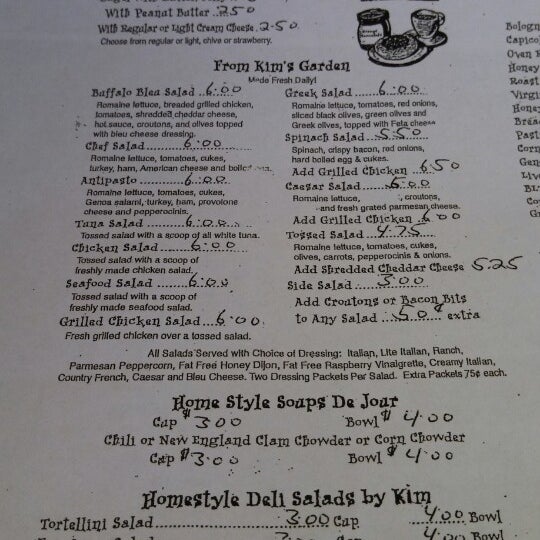 With Peanut Butter..2.50
With Regular or Light Cream Cheese..2.50
Choose from regular or light, chive or strawberry.
From Kim's Garden
Made Fresh Daily!
Buffalo Bleu Salad..6.00
Romaine lettuce, breaded grilled chicken,
tomatoes, shredded cheddar cheese,
hot sauce, croutons, and olives topped
with bleu cheese dressing.
Chef Salad..........6.00
Romaine lettuce, tomatoes, cukes,
turkey, ham, American cheese and boiled
Antipasto..........6.00
Romaine lettuce, tomatoes, cukes,
Genoa salami, turkey, ham, provolone
cheese and pepperocinis.
Tuna Salad..........6.00
Tossed salad with a scoop of all white tuna.
Chicken Salad.......6.00
Tossed salad with a scoop of
freshly made chicken salad.
Seafood Salad.......6.00
Tossed salad with a scoop of
freshly made seafood salad.
Grilled Chicken Salad...6.00
Fresh grilled chicken over a tossed salad.
Greek Salad.......6.00
Romaine lettuce, tomatoes, red onions,
sliced black olives, green olives and
Greek olives, topped with Feta cheese
Spinach Salad....5.50
Spinach, crispy bacon, red onions,
hard boiled egg & cukes.
Add Grilled Chicken..6.50
Caesar Salad.......
Romaine lettuce, croutons,
and fresh grated parmesan cheese.
Add Grilled Chicken 6.00
Tossed Salad......4.75
Romaine lettuce, tomatoes, cukes,
olives, carrots, pepperocinis & onions.
Add Shredded Cheddar Cheese 5.25
Side Salad........3.00
Add Croutons or Bacon Bits
to Any Salad....50¢ extra
All Salads Served with Choice of Dressing: Italian, Lite Italian, Ranch,
Parmesan Peppercorn, Fat Free Honey Dijon, Fat Free Raspberry Vinaigrette, Creamy Italian,
Country French, Caesar and Bleu Cheese. Two Dressing Packets Per Salad. Extra Packets 75¢ each.
Home Style Soups De Jour
Cup $3.00 Bowl $4.00
Chili or New England Clam Chowder or Corn Chowder
Cup $3.00 Bowl $4.00
Homestyle Deli Salads by Kim
Tortellini Salad..............................3.00 Cup ........4.00 Bowl
Bologn
Capico
Oven
Honey
Roast
Virgi
Honey
Brea
Past
Corn
Gen